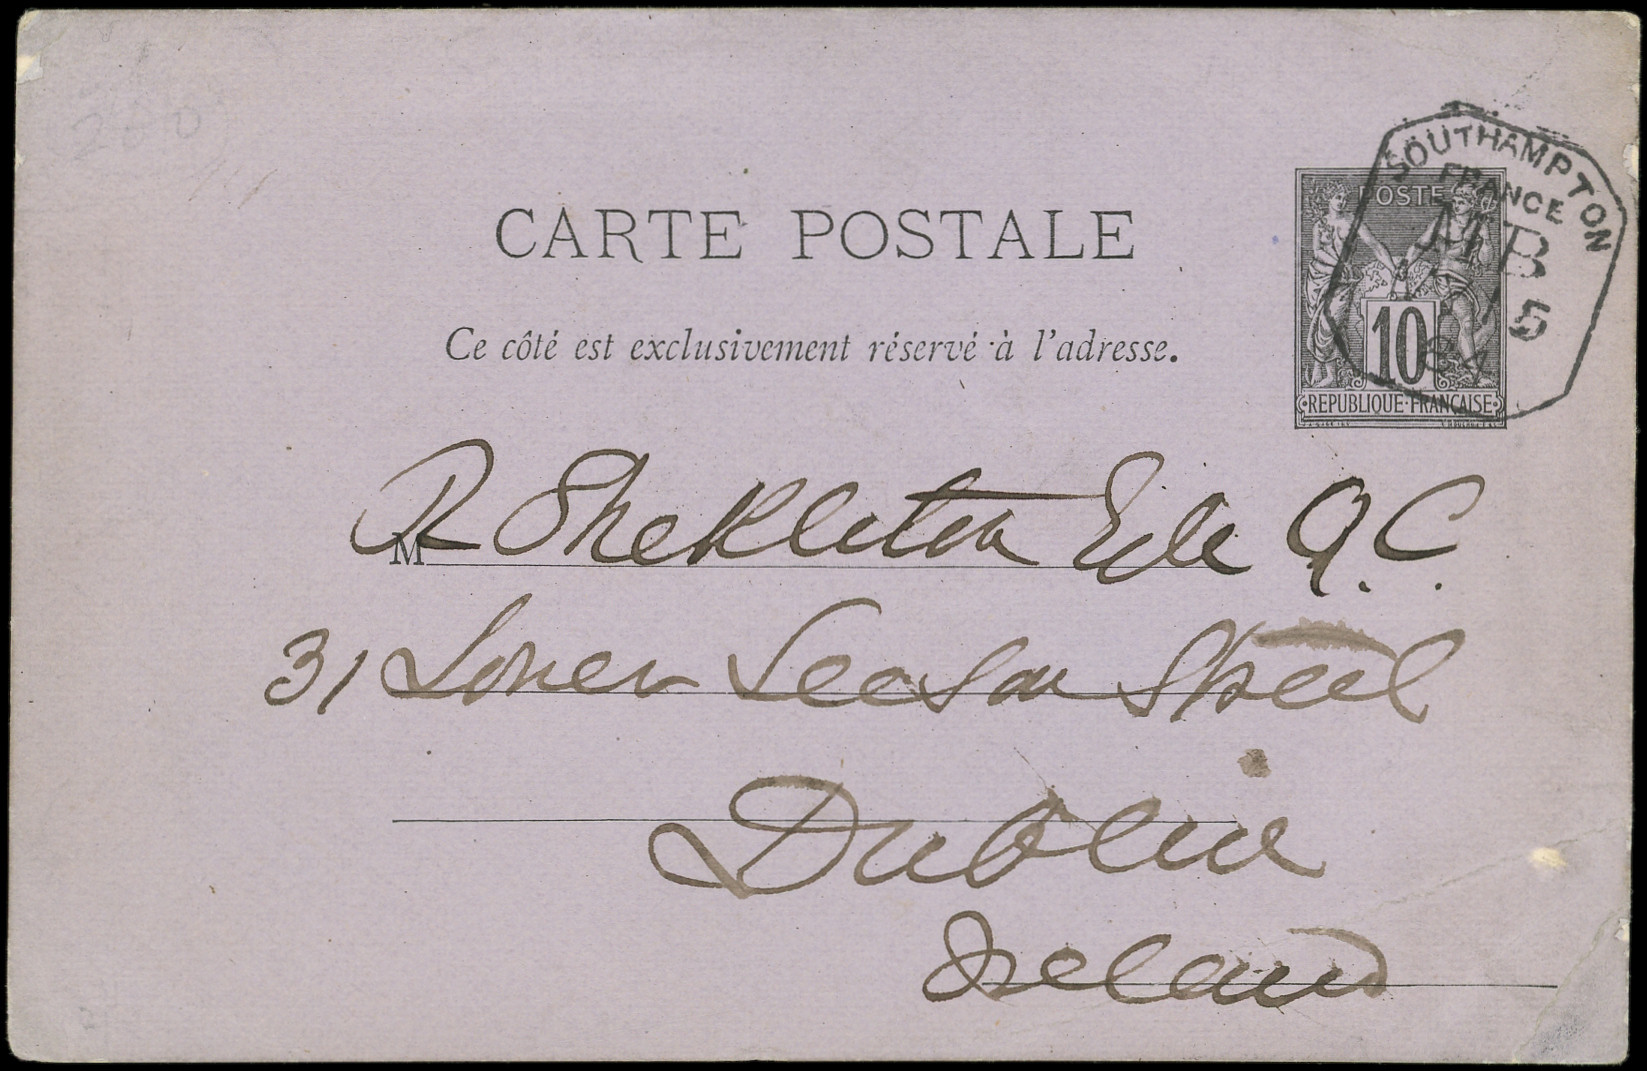 CARTE POSTALE
Ce côté est exclusivement réservé à l'adresse.
POSTE
10
REPUBLIQUE FRANÇAISE
SOUTHAMPTON
FRANCE
M B
5
84
M R Shekleton Esqe Q.C.
31 Lower Leeson Street
Dublin
Ireland